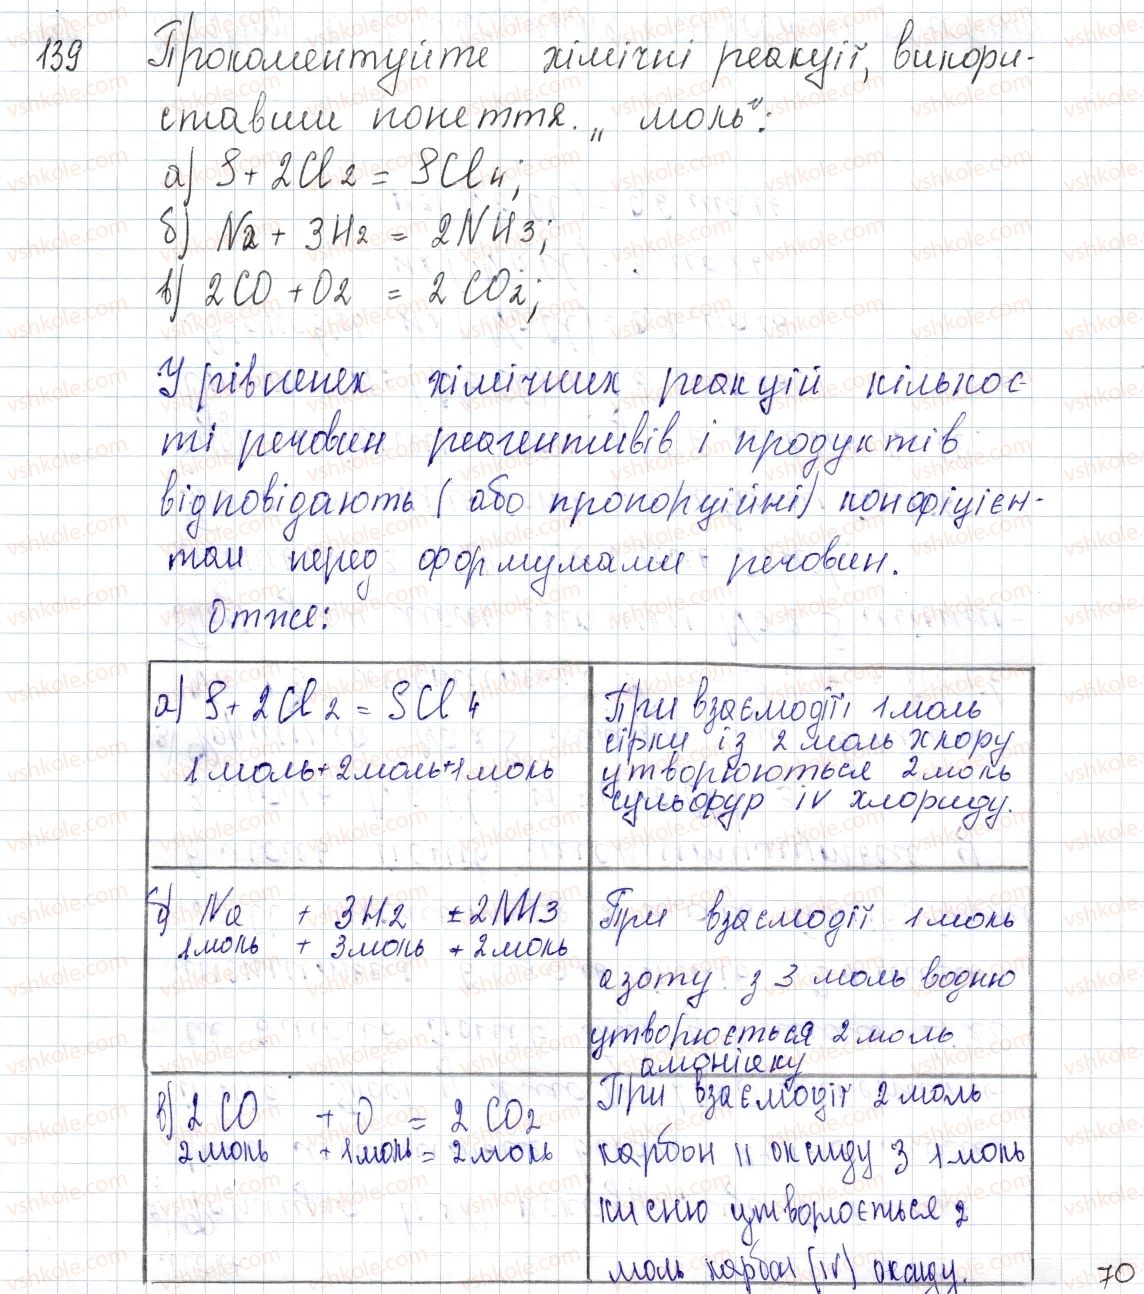 139 Прокоментуйте хімічні реакції, викори-
ставши поняття „моль":
а) S + 2Cl2 = SCl4;
б) N2 + 3H2 = 2NH3;
в) 2CO + O2 = 2CO2;
У рівненях хімічних реакцій кількос
ті речовин реагентивів і продуктів
відповідають (або пропорційні) коефіцієн-
там перед формулами речовин.
Отже:
а) S + 2Cl2 = SCl4
1 моль + 2 моль + 1 моль
При взаємодії 1 моль
сірки із 2 моль хлору
утворюються 2 моль
сульфур IV хлориду.
б) N2 + 3H2 ± 2NH3
1 моль + 3 моль + 2 моль
При взаємодії 1 моль
азоту з 3 моль водню
утворюється 2 моль
амоніяку
в) 2CO + O = 2CO2
2 моль + 1 моль = 2 моль
При взаємодії 2 моль
карбон II оксиду з 1 моль
кисню утворюється 2
моль карбон (IV) оксиду.
70
vshkole.com